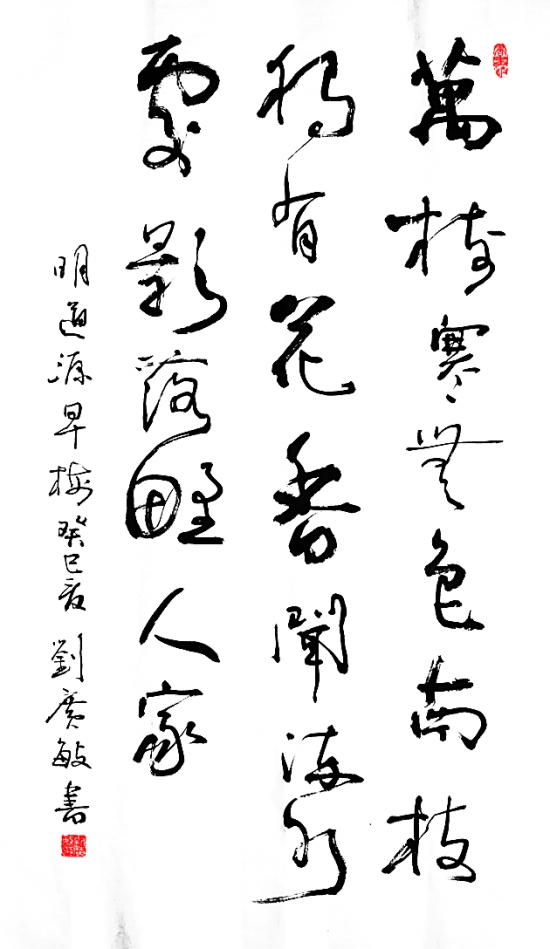 萬樹寒無色南枝
獨有花香聞流水
處影落野人家
明道源早梅癸巳夏劉廣敏書